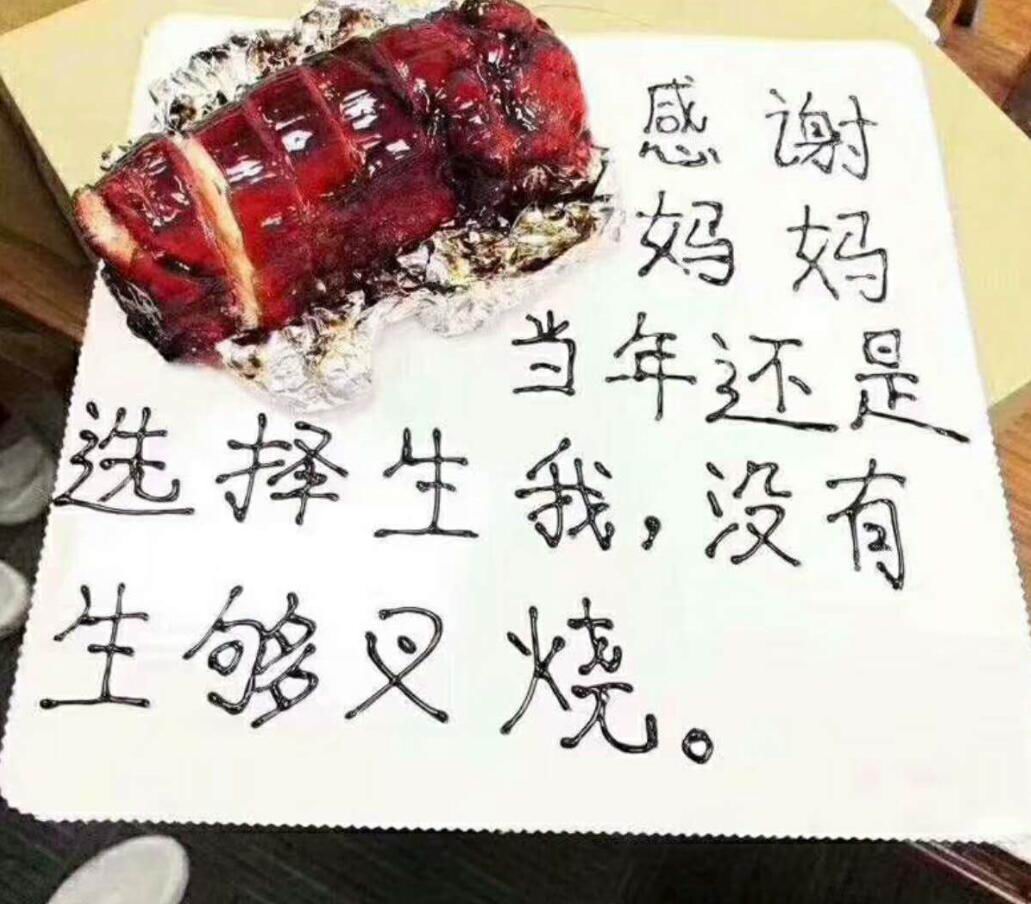 感谢
妈妈
当年还是
选择生我，没有
生够叉烧。